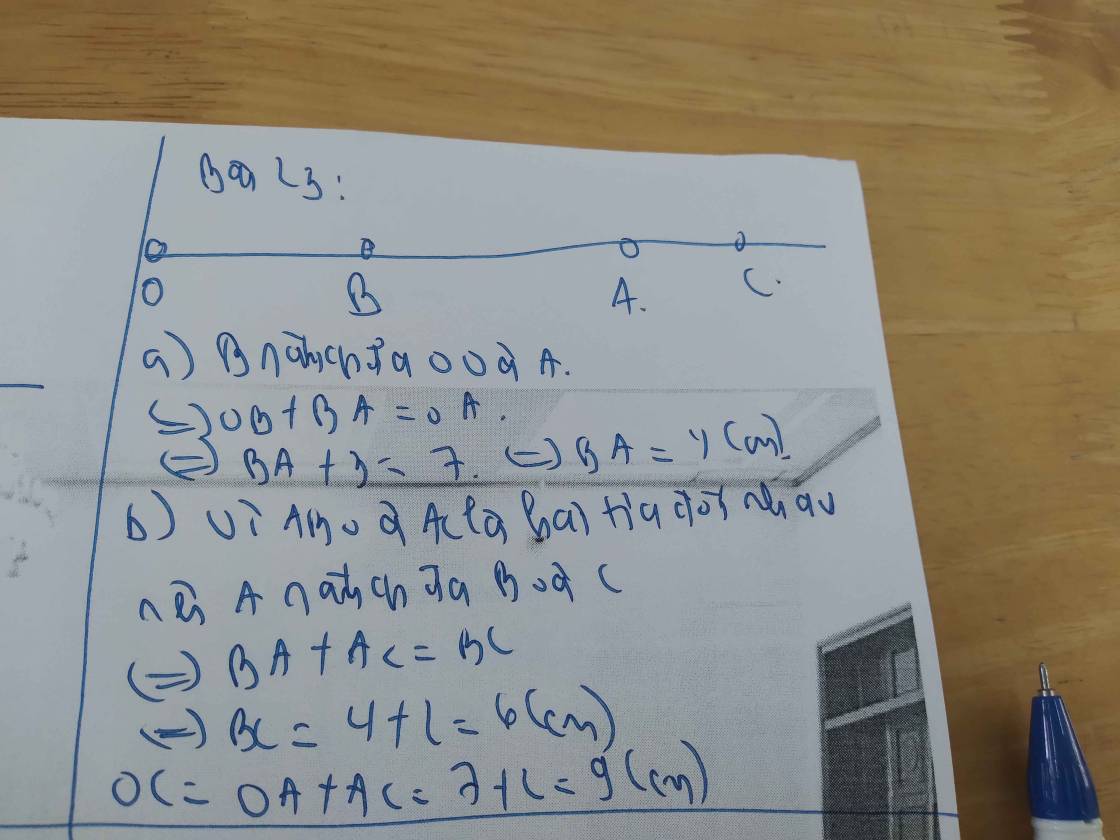 Bài 23:
O B A. C.
a) B nằm giữa O và A.
(=) OB + BA = OA.
(=) BA + 3 = 7. (=) BA = 4 (cm).
b) Vì AB và AC là hai tia đối nhau
nên A nằm giữa B và C
(=) BA + AC = BC
(=) BC = 4 + 2 = 6 (cm)
OC = OA + AC = 7 + 2 = 9 (cm)